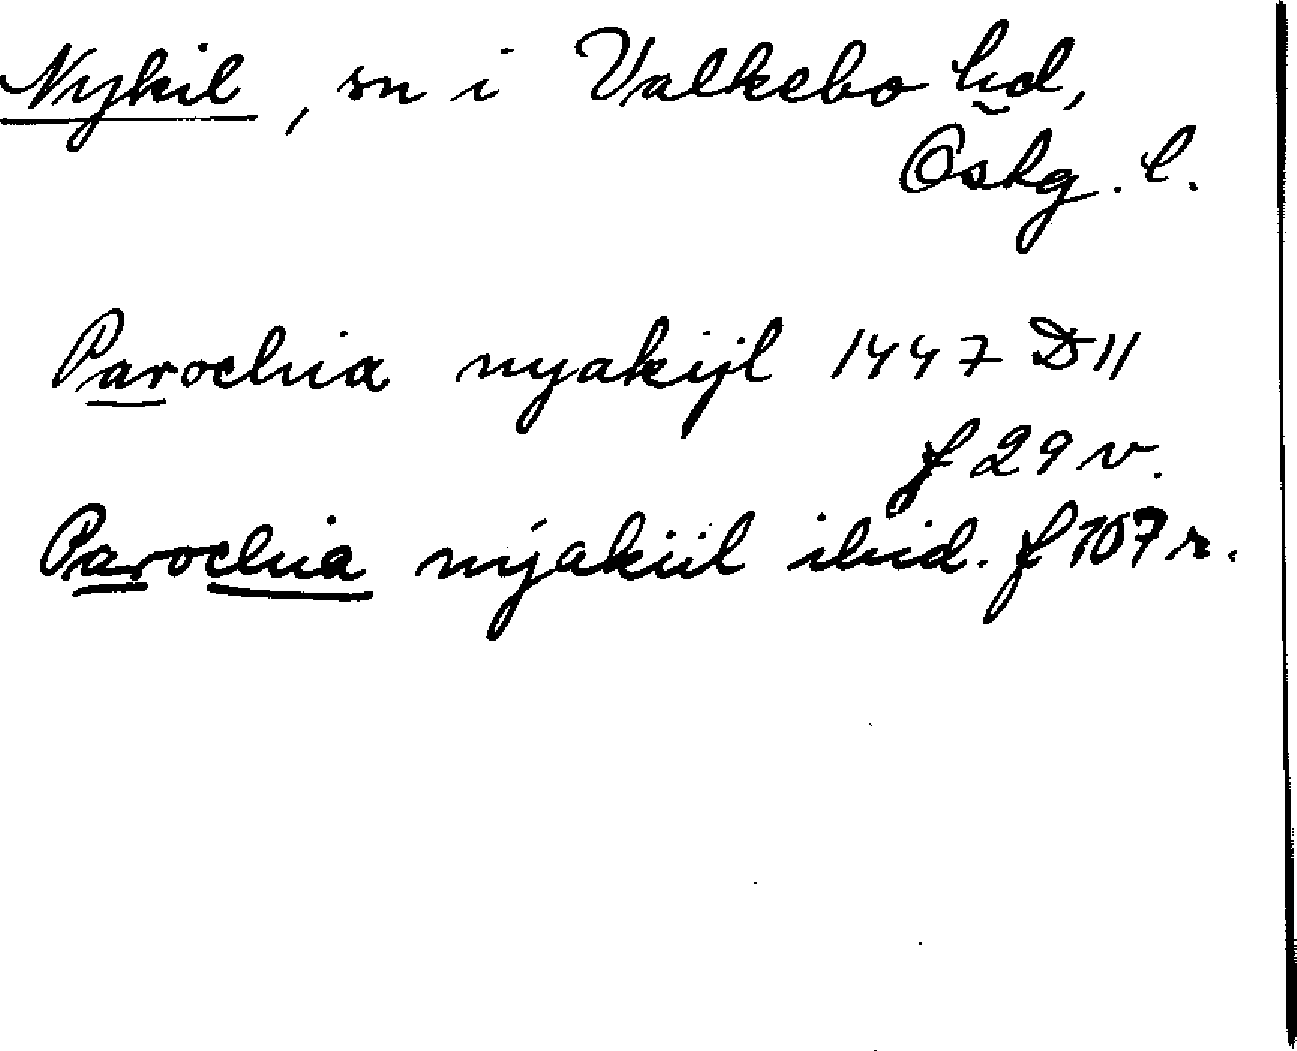 Nykil, sn i Valkebo hd,
Östg. l.
Parochia nyakijl 1447 D 11
f 29 v.
Parochia nyakiil ibid. f 107 r.